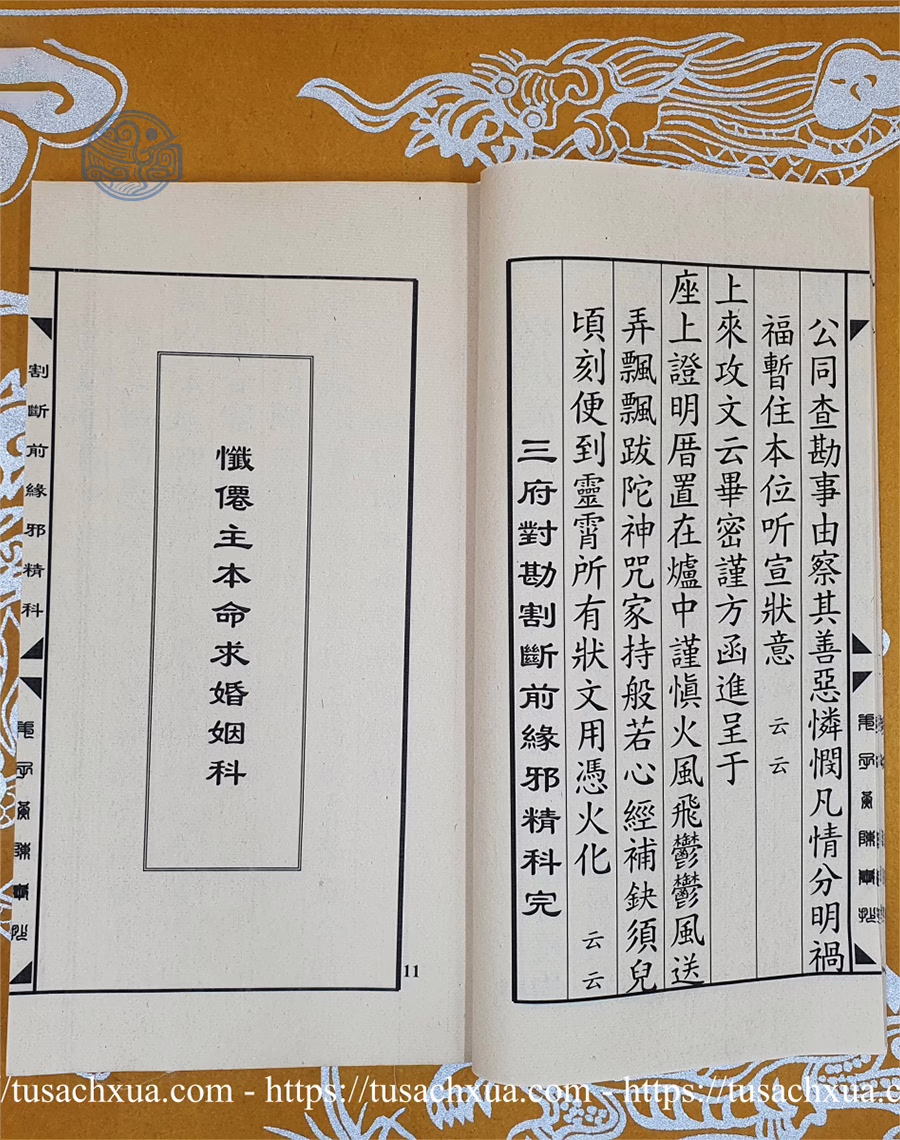 公同查勘事由察其善惡憐憫凡情分明禍
福暫住本位听宣狀意 云云
上來攻文云畢密謹方函進呈于
座上證明厝置在爐中謹慎火風飛鬱鬱風送
弄飄飄跋陀神咒家持般若心經補鈌須臾
頃刻便到靈霄所有狀文用憑火化 云云
三府對勘割斷前緣邪精科完
懺僊主本命求婚姻科
割斷前緣邪精科
11
//tusachxua.com - https://tusachxua.com - https://tusachxua.c